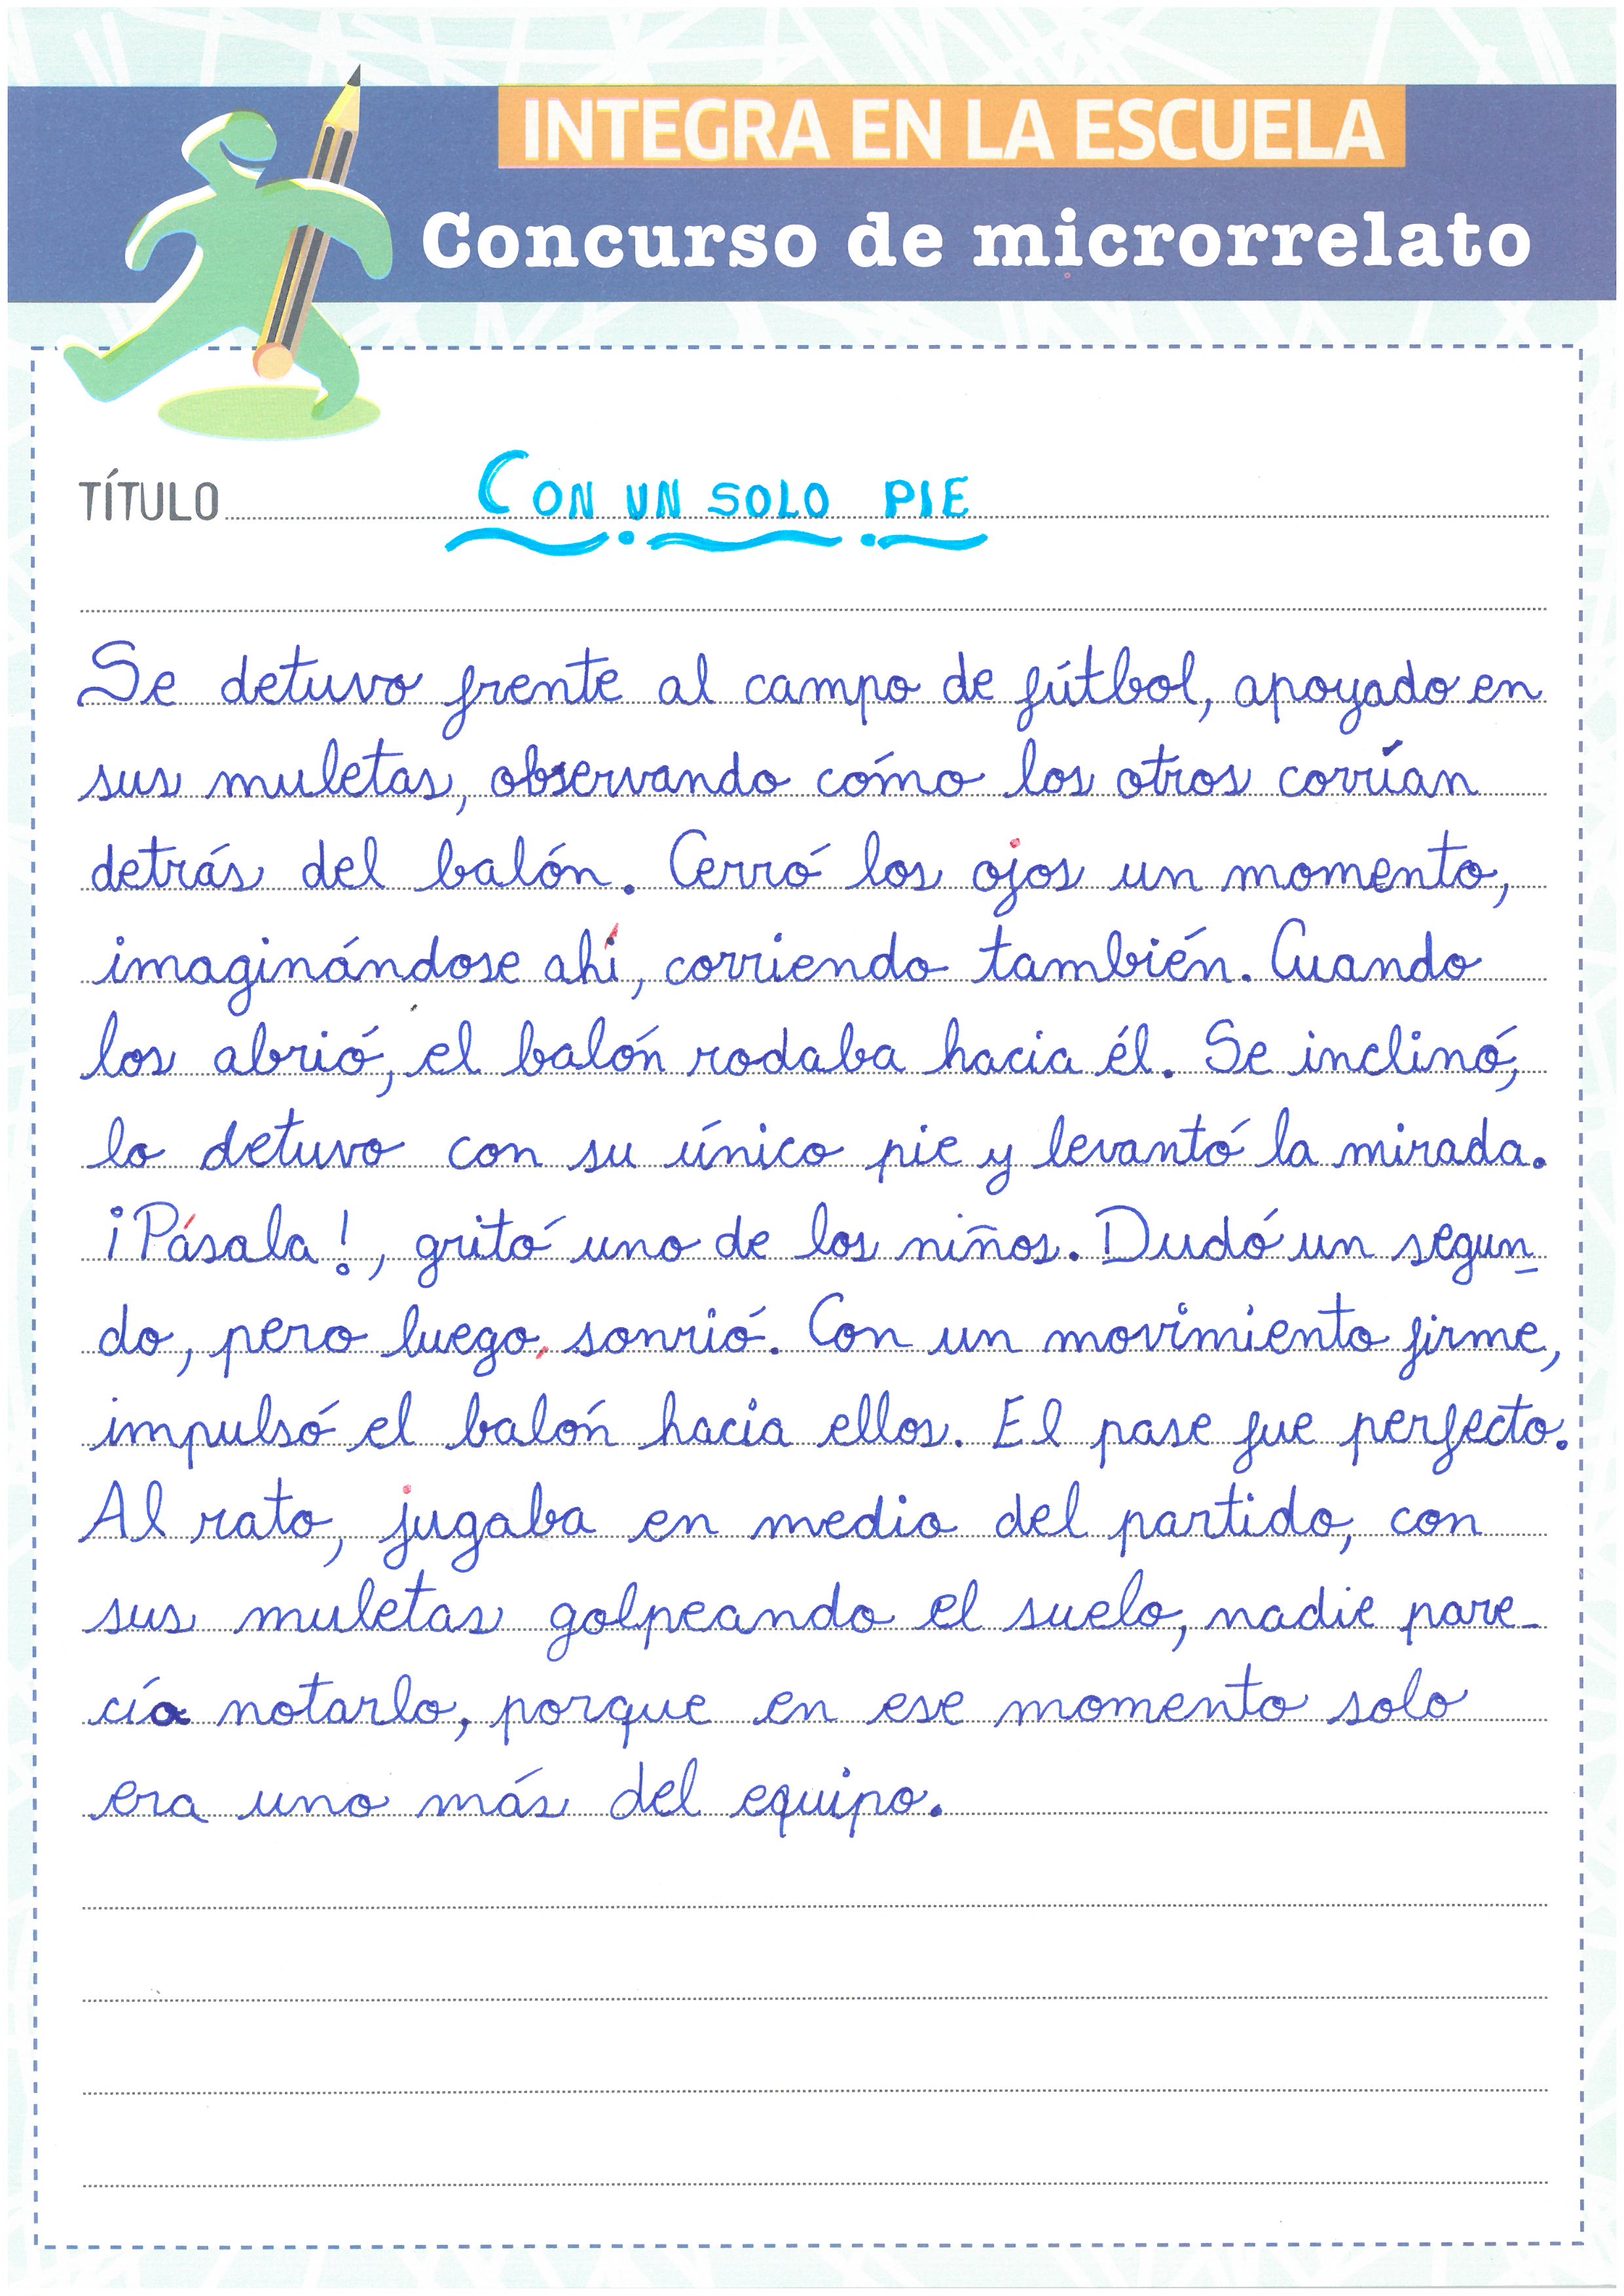 INTEGRA EN LA ESCUELA
Concurso de microrrelato
TÍTULO CON UN SOLO PIE
Se detuvo frente al campo de fútbol, apoyado en
sus muletas, observando cómo los otros corrían
detrás del balón. Cerró los ojos un momento,
imaginándose ahí, corriendo también. Cuando
los abrió, el balón rodaba hacia él. Se inclinó,
lo detuvo con su único pie y levantó la mirada.
¡Pásala!, gritó uno de los niños. Dudó un segun
do, pero luego, sonrió. Con un movimiento firme,
impulsó el balón hacia ellos. El pase fue perfecto.
Al rato, jugaba en medio del partido, con
sus muletas golpeando el suelo, nadie pare-
cía notarlo, porque en ese momento solo
era uno más del equipo.